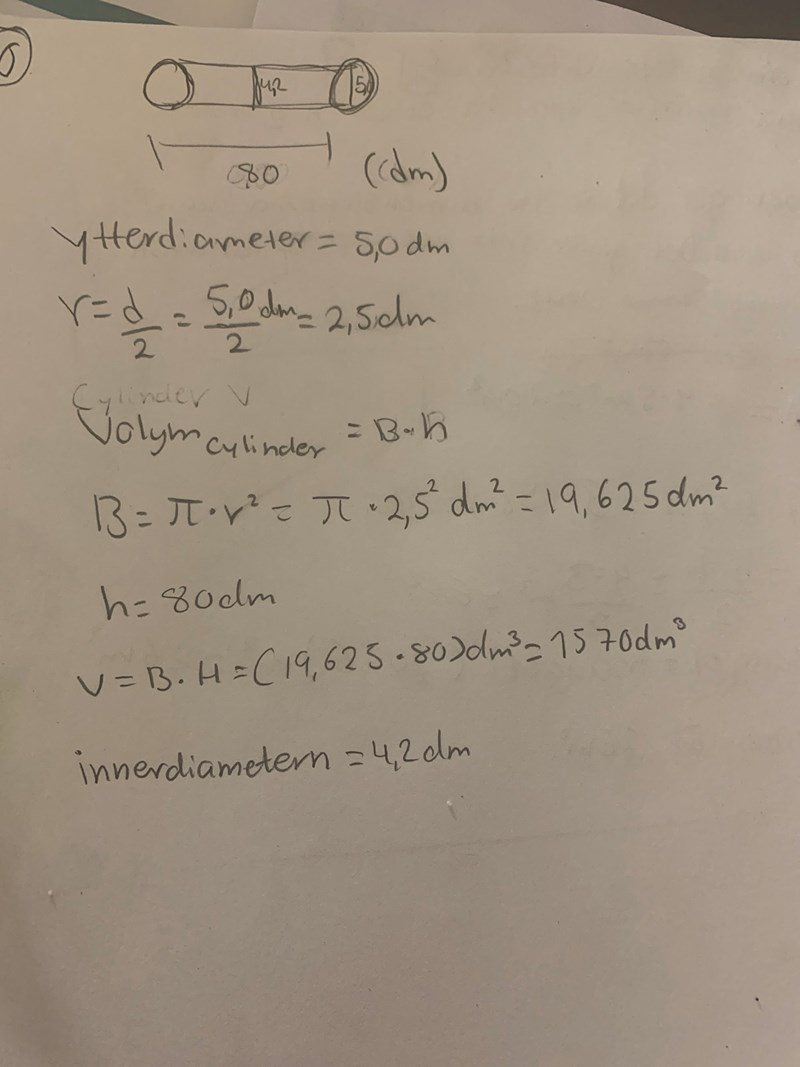 5
4,2 5,0
80 (dm)
ytterdiameter = 5,0 dm
r = d/2 = 5,0 dm/2 = 2,5 dm
Cylinder V
Volym cylinder = B · h
B = π · r² = π · 2,5² dm² = 19,625 dm²
h = 80 dm
V = B · H = (19,625 · 80) dm³ = 1570 dm³
innerdiametern = 4,2 dm